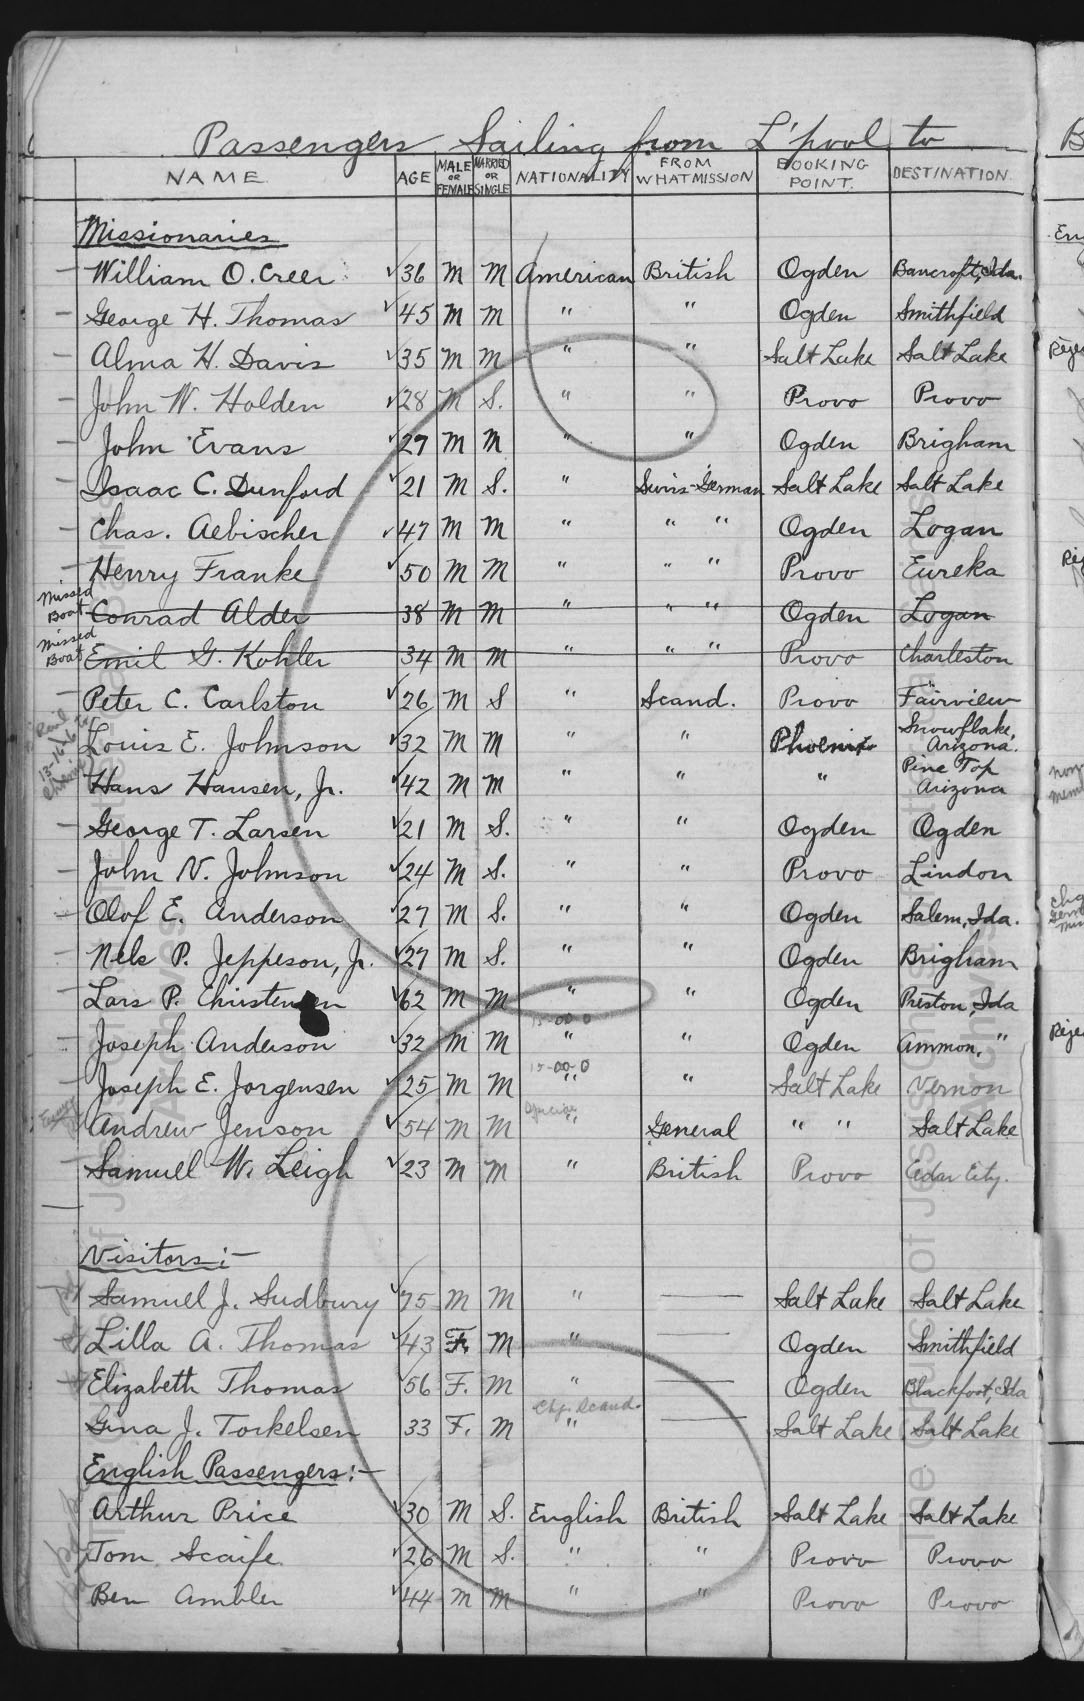 Passengers Sailing from L'pool to
NAME. AGE MALE OR FEMALE MARRIED OR SINGLE NATIONALITY FROM WHAT MISSION BOOKING POINT. DESTINATION.
Missionaries
— William O. Creer ✓36 M M American British Ogden Bancroft, Ida.
— George H. Thomas ✓45 M M " " Ogden Smithfield
— Alma H. Davis ✓35 M M " " Salt Lake Salt Lake
— John W. Holden ✓28 M S. " " Provo Provo
— John Evans ✓27 M M " " Ogden Brigham
— Isaac C. Dunford ✓21 M S. " Swiss-German Salt Lake Salt Lake
— Chas. Aebischer ✓47 M M " " " Ogden Logan
— Henry Franke ✓50 M M " " " Provo Eureka
Missed Boat Conrad Alder 38 M M " " " Ogden Logan
Missed Boat Emil G. Kohler 34 M M " " " Provo Charleston
— Peter C. Carlston ✓26 M S " Scand. Provo Fairview
Louis E. Johnson ✓32 M M " " Phoenix Snowflake, Arizona.
Hans Hansen, Jr. ✓42 M M " " " Pine Top Arizona
— George T. Larsen ✓21 M S. " " Ogden Ogden
— John N. Johnson ✓24 M S. " " Provo Lindon
— Olof E. Anderson ✓27 M S. " " Ogden Salem, Ida.
— Nels P. Jeppeson, Jr. ✓27 M S. " " Ogden Brigham
— Lars P. Christensen ✓62 M M " " Ogden Preston, Ida
15-00 0
— Joseph Anderson ✓32 M M " " Ogden Ammon, "
15-00 0
— Joseph E. Jorgensen ✓25 M M " " Salt Lake Vernon
Andrew Jenson ✓54 M M " General " " Salt Lake
— Samuel W. Leigh ✓23 M M " British Provo Cedar City.
Visitors:—
Samuel J. Sudbury ✓75 M M " —— Salt Lake Salt Lake
Lilla A. Thomas ✓43 F. M " —— Ogden Smithfield
Elizabeth Thomas ✓56 F. M " —— Ogden Blackfoot, Ida
Chg. Scand.
Gina J. Torkelsen 33 F. M " —— Salt Lake Salt Lake
English Passengers:—
Arthur Price ✓30 M S. English British Salt Lake Salt Lake
Tom Scaife ✓26 M S. " " Provo Provo
Ben Ambler ✓44 M M " " Provo Provo